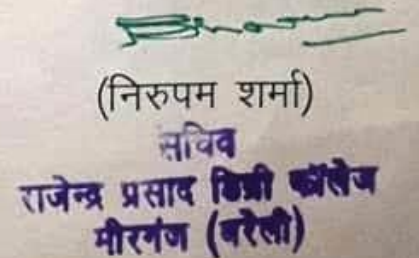 (निरुपम शर्मा)
सचिव
राजेन्द्र प्रसाद डिग्री कॉलेज
मीरगंज (बरेली)